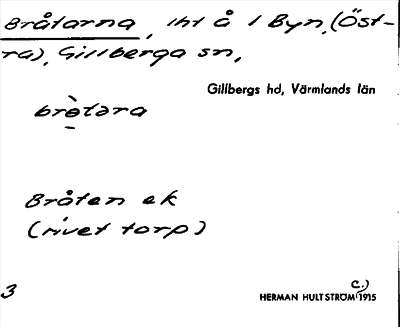 Bråtarna, iht å 1 Byn, (Öst-
ra), Gillberga sn,
Gillbergs hd, Värmlands län
bròtara
Bråten ek
(rivet torp)
3
C.)
HERMAN HULTSTRÖM 1915